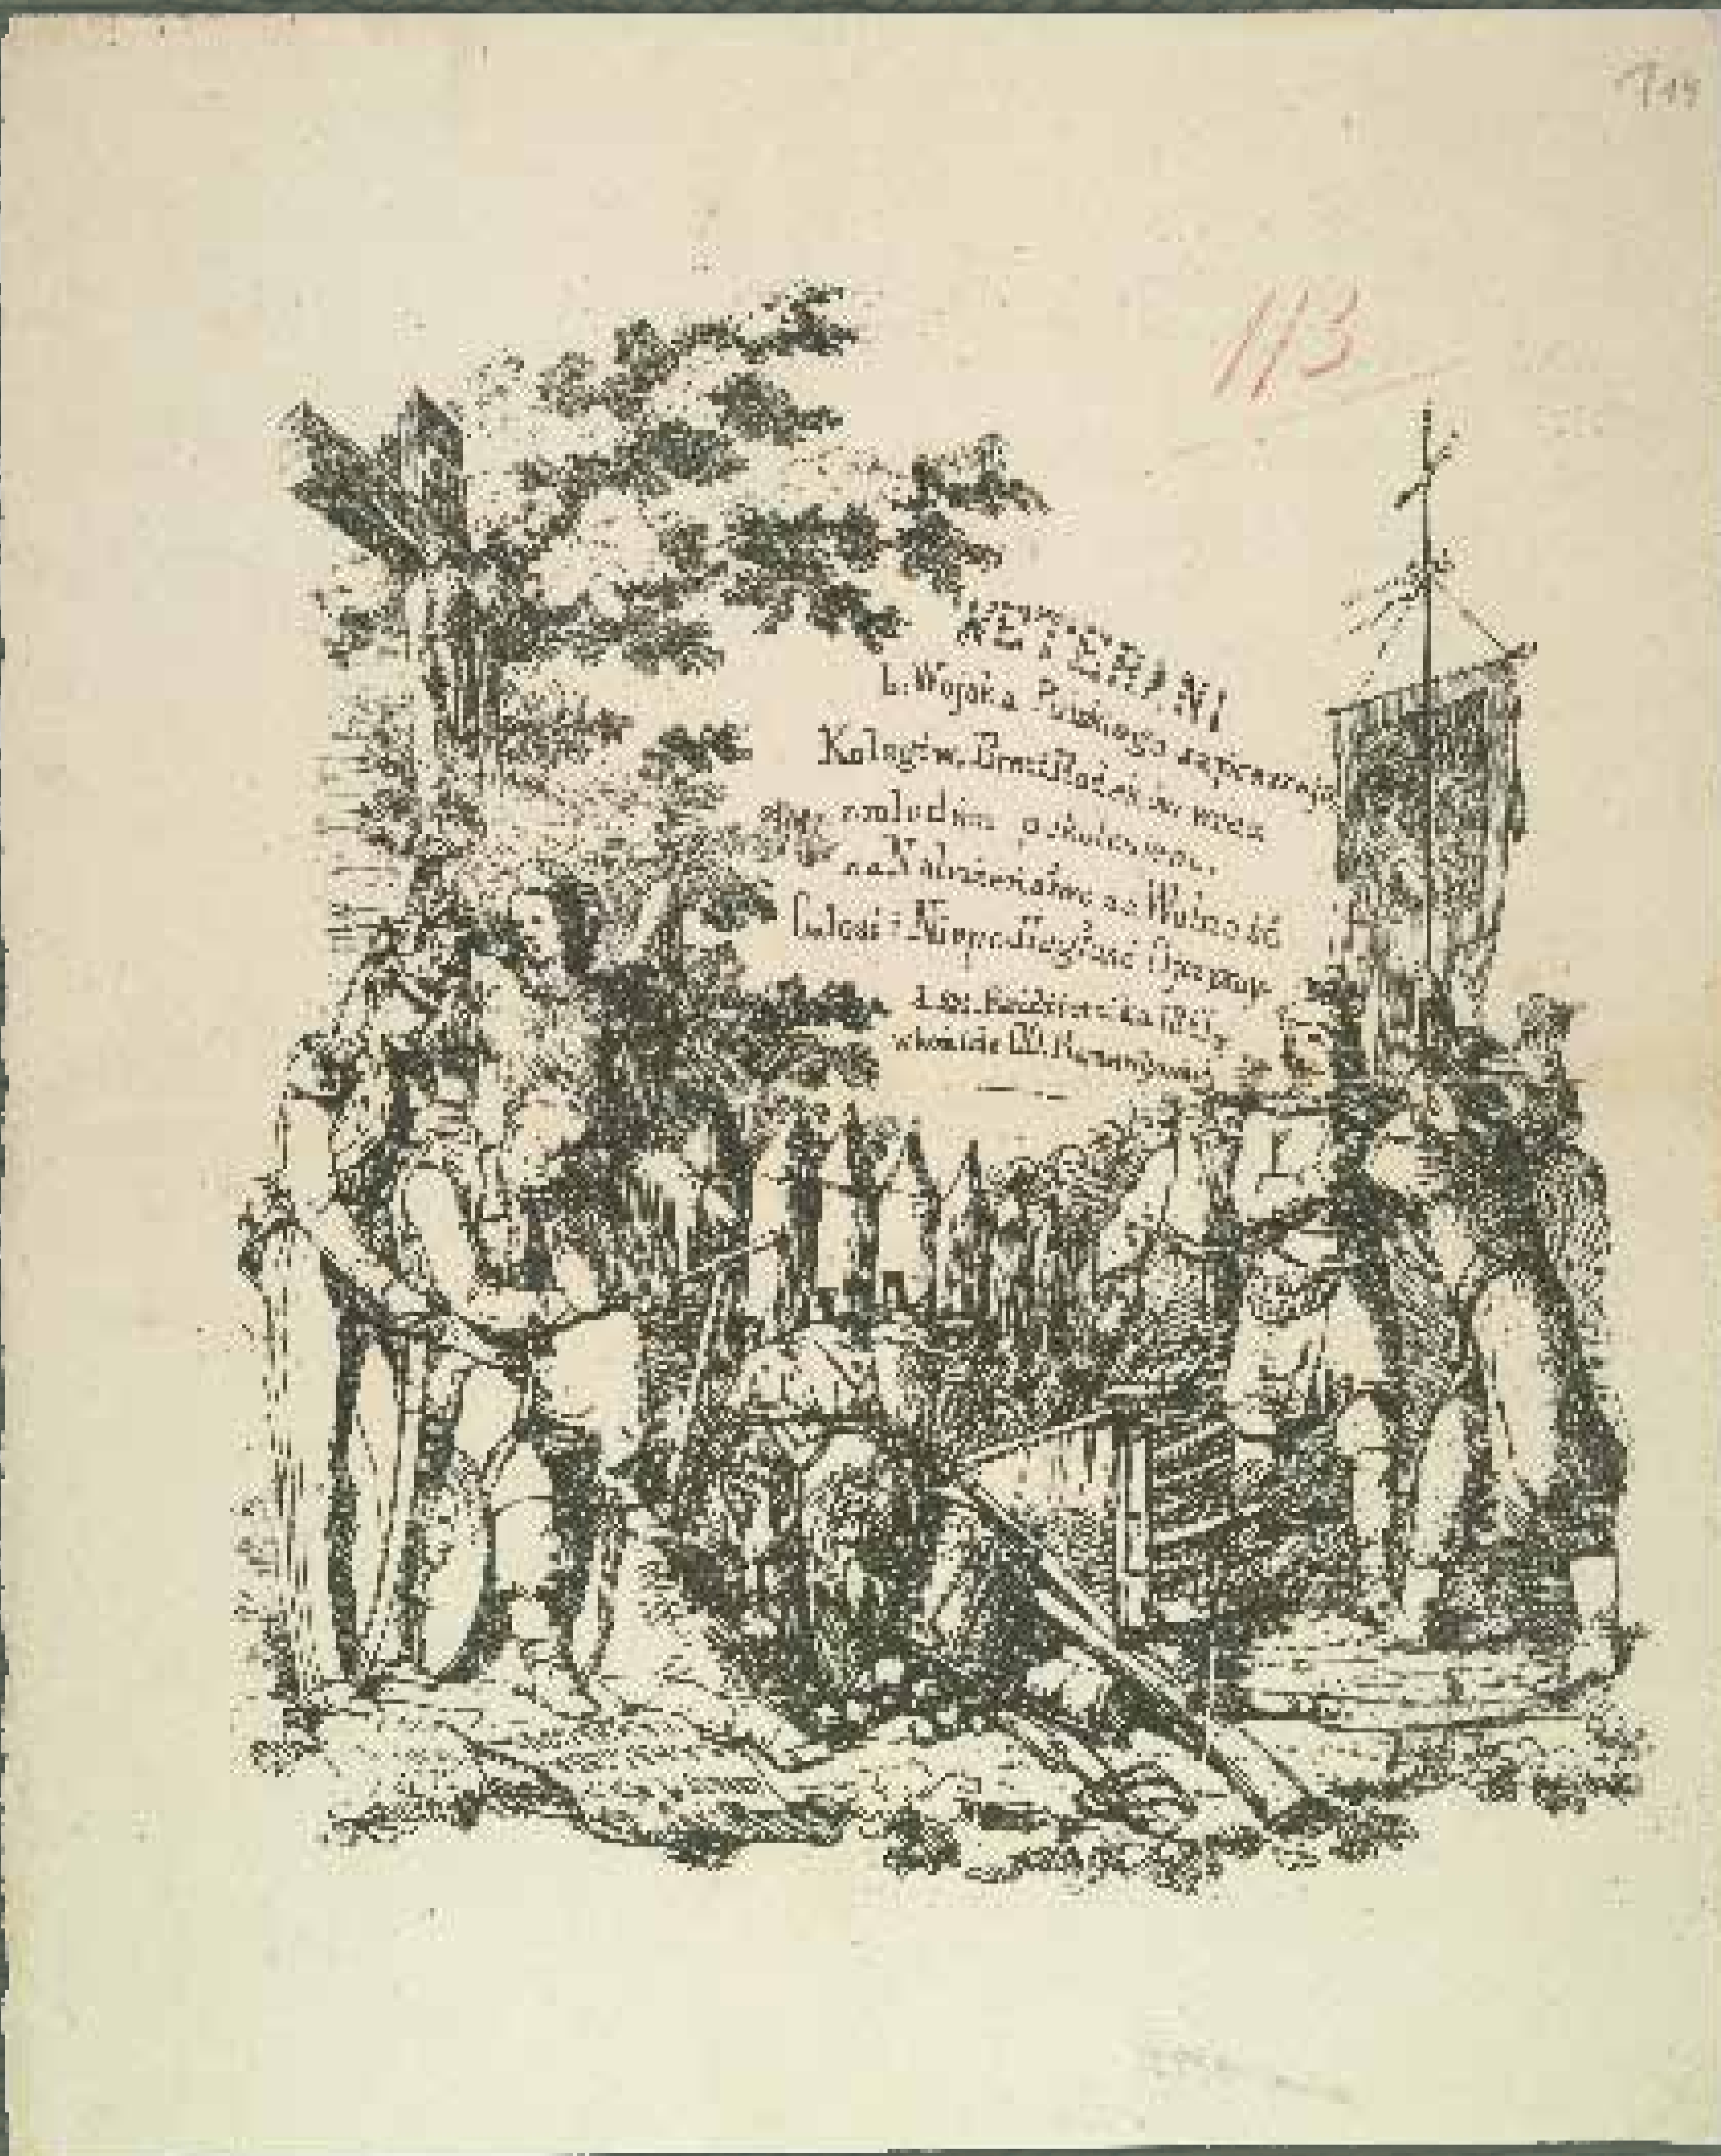 113
WETERANI
b. Wojska Polskiego zapraszają
Kolegów, Braci Rodaków wraz
z młodem pokoleniem,
na Nabożeństwo za Wolność
Całość i Niepodległość Ojczyzny
d. Października 1861 r.
w kościele